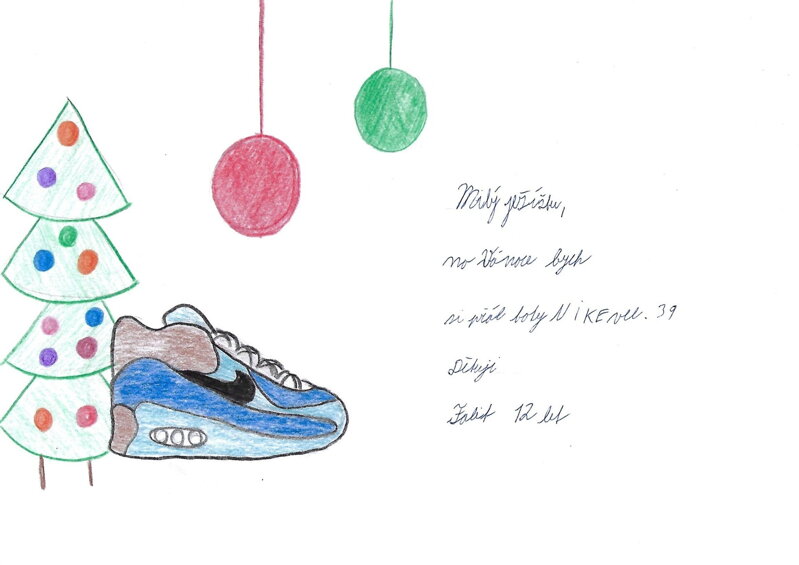 Milý ježíšku,
na Vánoce bych
si přál boty NiKE vel. 39
Děkuji
12 let